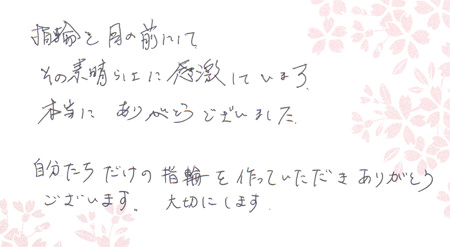 指輪を目の前にして
その素晴らしさに感激しています。
本当に ありがとうございました。
自分たちだけの指輪を作っていただきありがとう
ございます。 大切にします。